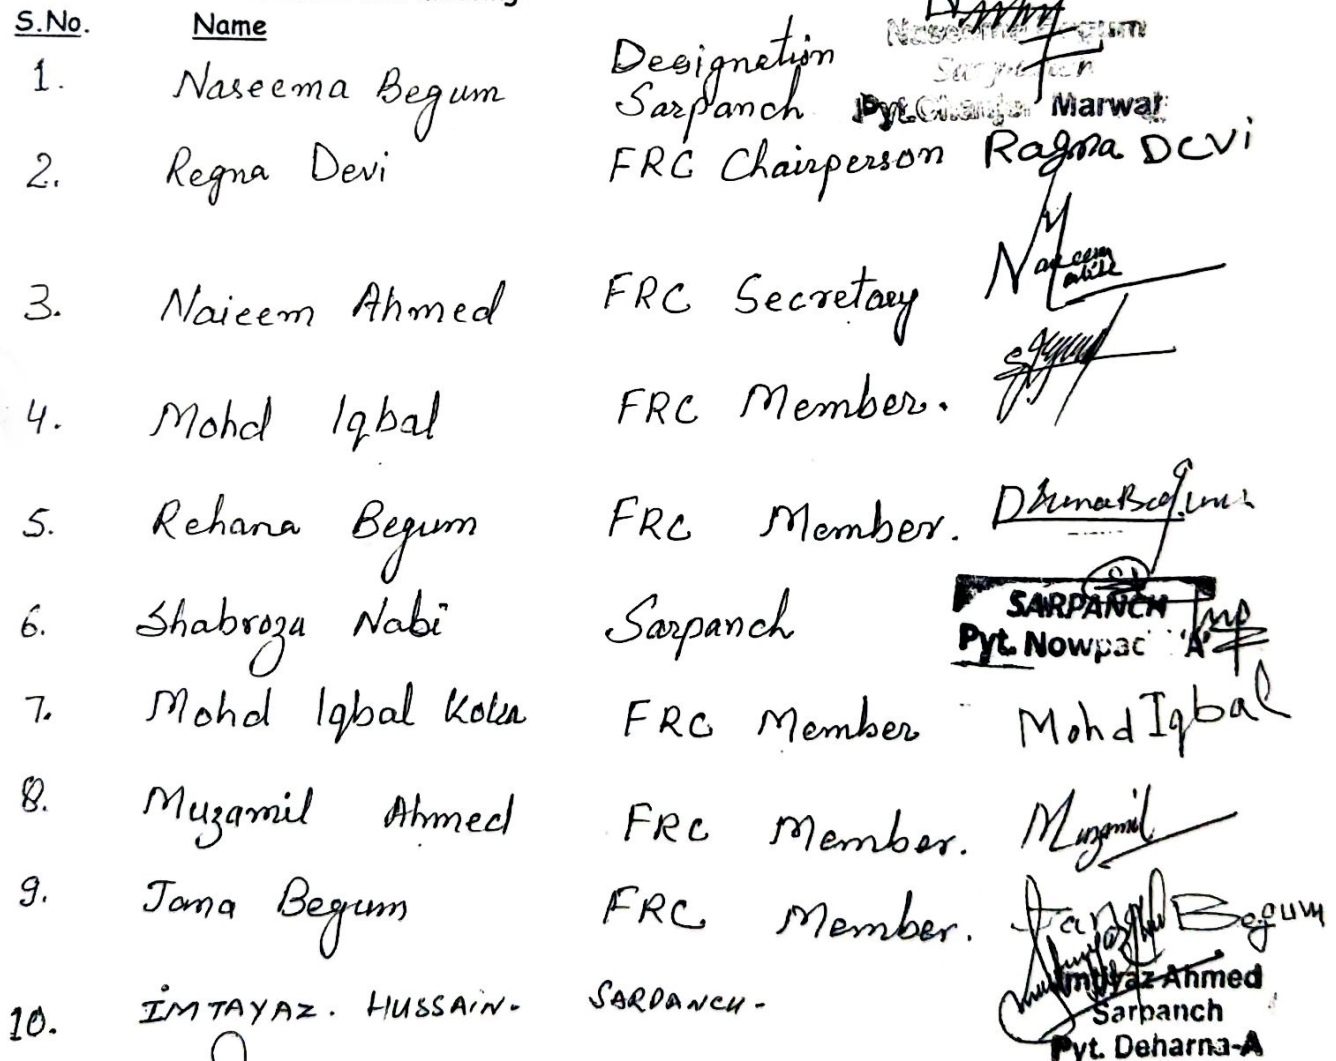 S.No. Name
Designetion
1. Naseema Begum Sarpanch
Naseema Begum
Sarpanch
Pyt. Marwat
2. Regna Devi FRC Chairperson Ragna DCVi
3. Naieem Ahmed FRC Secretary Naieem
4. Mohd Iqbal FRC Member.
5. Rehana Begum FRC Member.
6. Shabroza Nabi Sarpanch
SARPANCH
Pyt. Nowpac 'A'
7. Mohd Iqbal FRC Member Mohd Iqbal
8. Muzamil Ahmed FRC Member. Muzamil
9. Jana Begum FRC Member. Jana Begum
10. IMTAYAZ. HUSSAIN. SARPANCH-
Imtiyaz Ahmed
Sarpanch
Pyt. Deharna-A